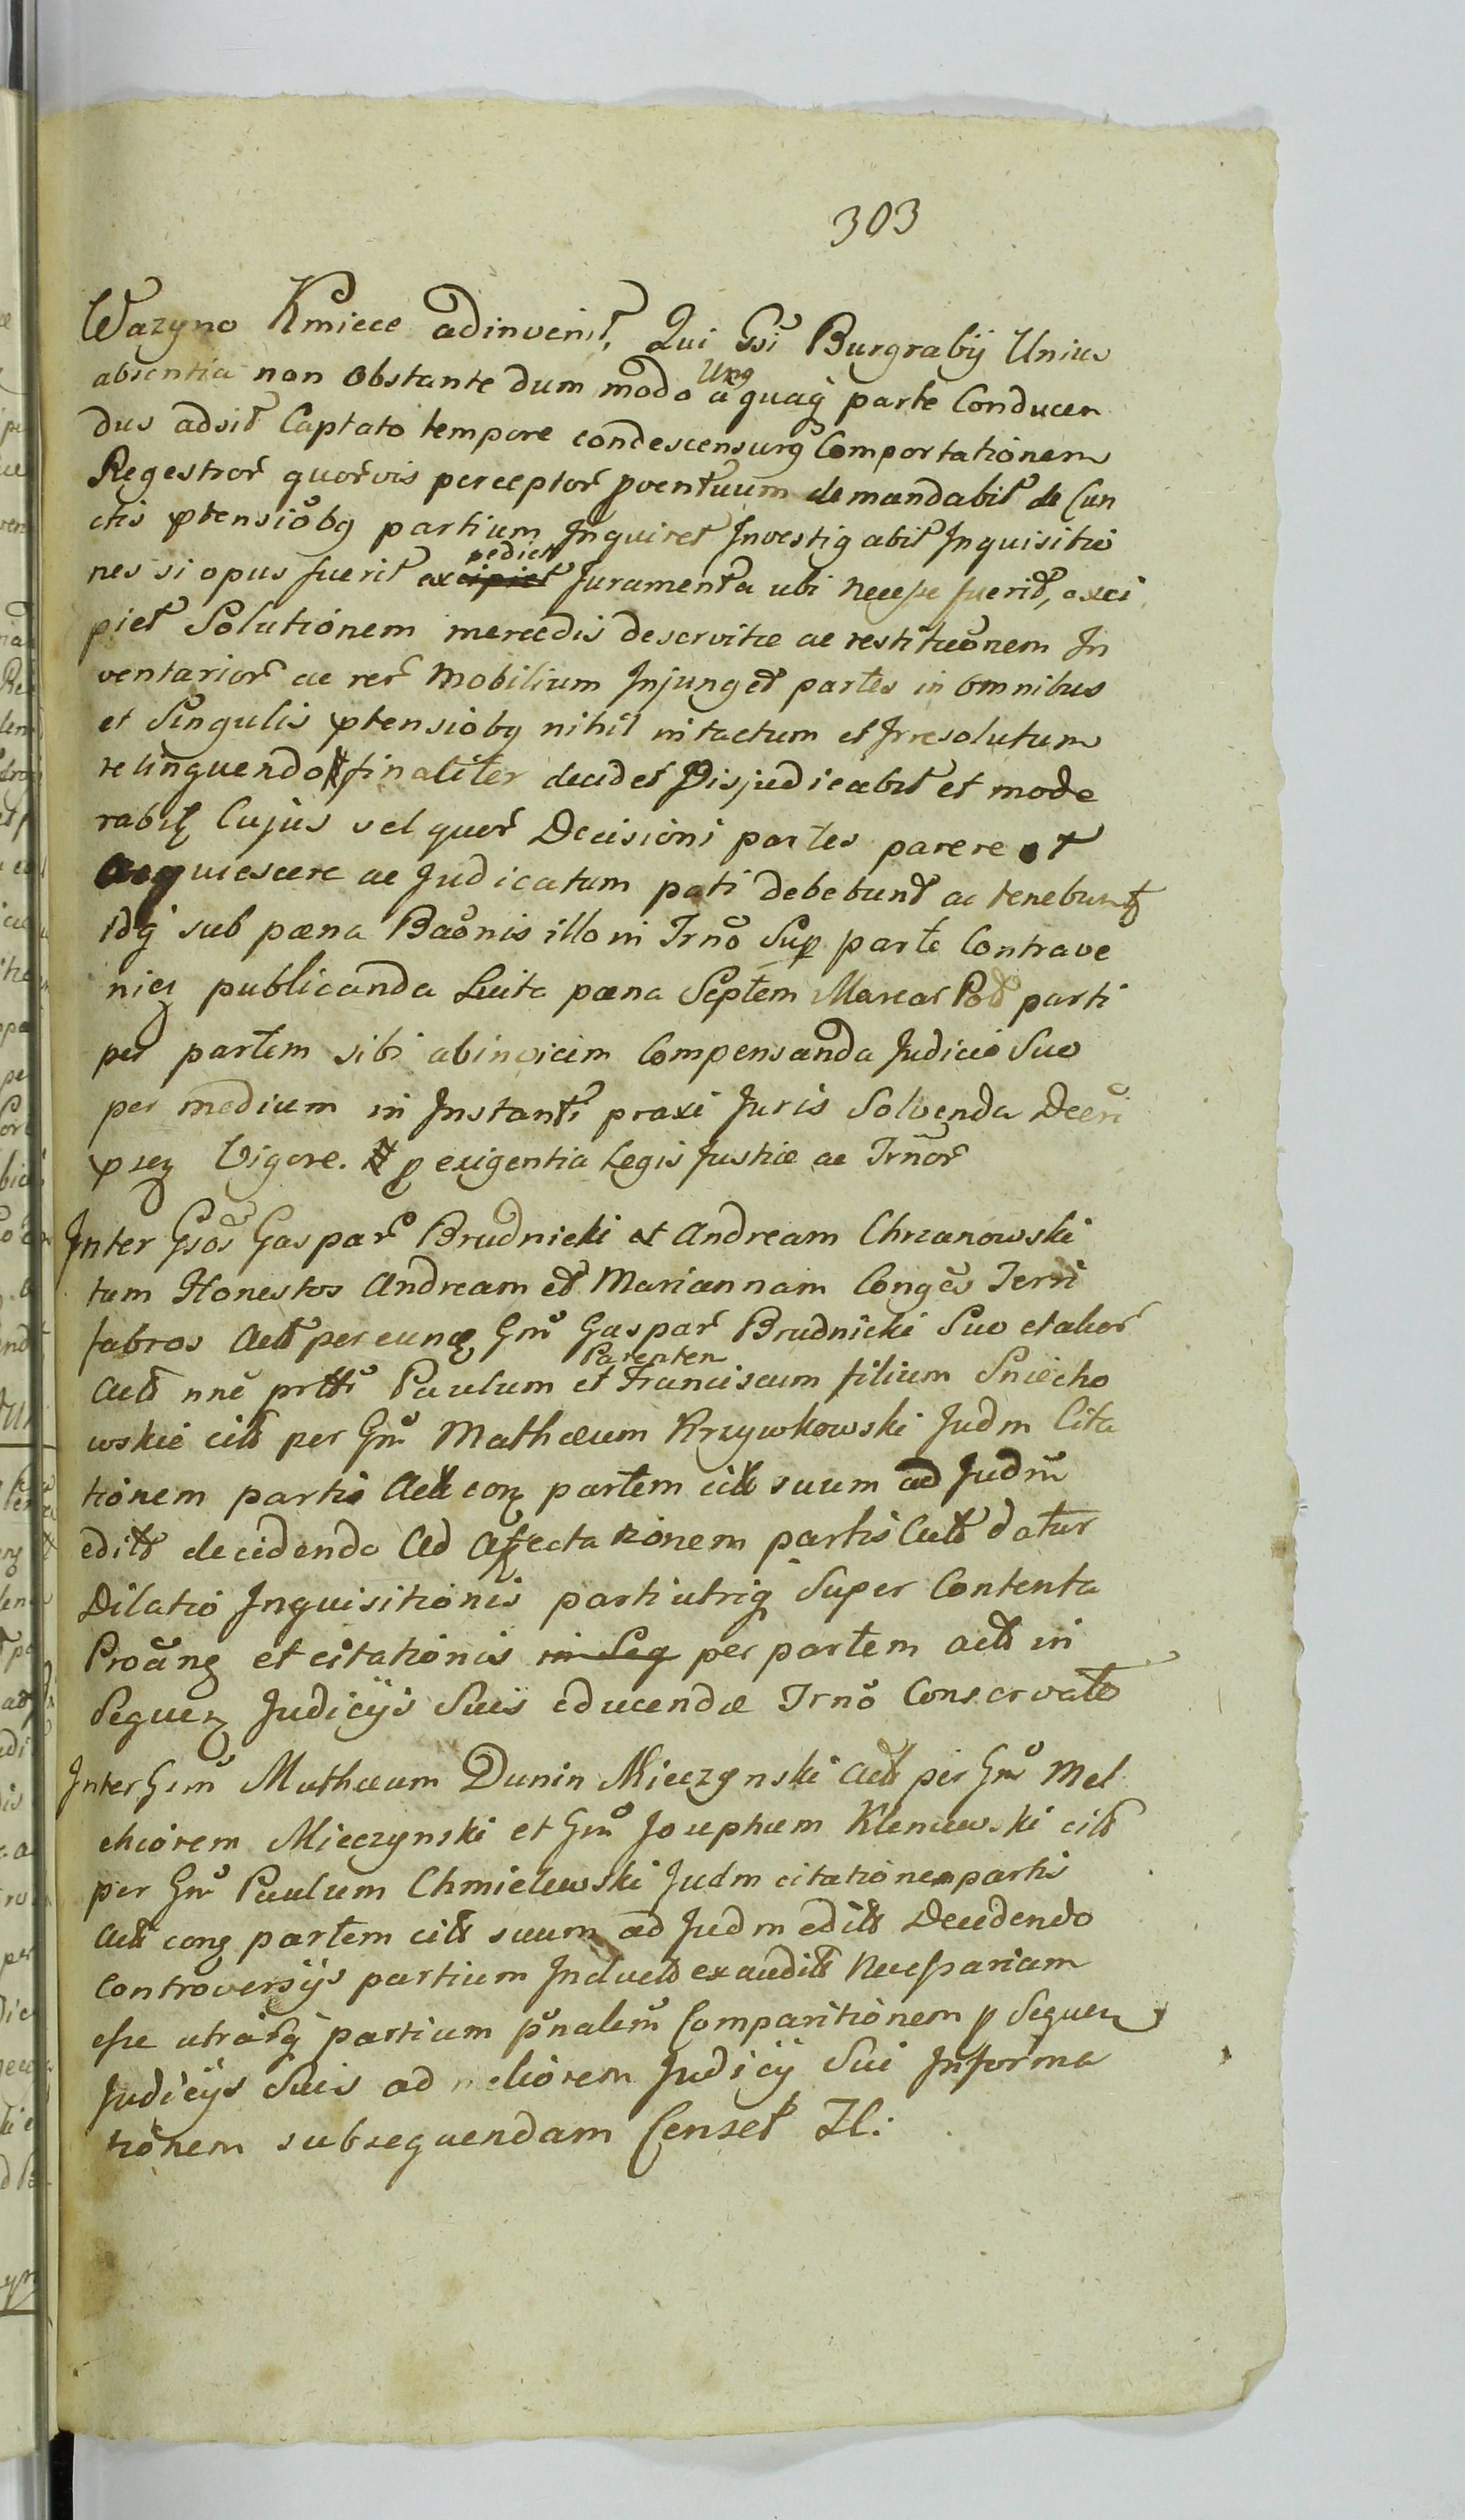 303
Wazyno Kmiece adinvenit, Qui Gsi Burgrabij Unius
absentia non obstante dum modo Unq a quaq parte Conducen
dus adsit Captato tempore condescensurq Comportationem
Regestror quorvis perceptor pventuum demandabit de Cun
ctis ptensiobq partium Inquiret Investigabit Inquisitio
nes si opus fuerit expediet Juramenta ubi necesse fuerit, exci
piet Solutionem mercedis deservitæ ac restitueonem In
ventarior ac rer Mobilium Injunget partes in omnibus
et Singulis ptensiobq nihil intactum et Irresolutum
relinquendo finaliter decidet Disjudicabit et mode
rabit Cujus vel quor Decisioni partes parere et
acquiescere ac Judicatum pati debebunt ac tenebunt
idq sub pæna Baonis illo in Trno Sup parte Contrave
nien publicanda Luita pæna Septem Marcar Pol parti
per partem sibi abinvicem Compensanda Judicio Suo
per medium in Instanti praxi Juris Solvenda Decri
psen Vigore. p exigentia Legis Justiæ ac Trnor
Inter Gsos Gaspar Brudnicki et Andream Chrzanowski
tum Honestos Andream et Mariannam Conges Ferri
fabros Act per eunq Gm Gaspar Brudnicki Suo et alior
Act nne prtti Paulum Parentem et Franciscum filium Sniecho
wskie cit per Gm Mathæum Krzywkowski Judm Cita
tionem partis Act con partem cit suum ad Judm
edit decidendo Ad Affectationem partis Act datur
Dilatio Inquisitionis parti utriq Super Contenta
Proan et citationis in Seq per partem act in
Sequen Judicijs Suis educendæ Trno Conservato
Inter Gsm Mathæum Dunin Mieczynski Act per Gm Mel
chiorem Mieczynski et Gm Josephum Kleniewski cit
per Gm Paulum Chmielewski Judm citationem partis
Act con partem cit suum ad Judm edit Decidendo
Controversijs partium Induct exaudit Necessariam
esse utriusq partium pnalem Comparitionem p Sequen
Judicijs Suis ad meliorem Judicij Sui Informa
tionem subsequendam Censet Il: